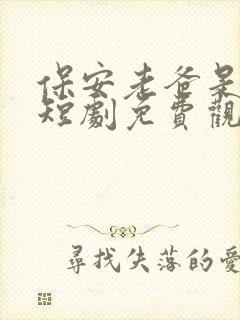 保安老爸呆
短劇免費觀
尋找失落的愛